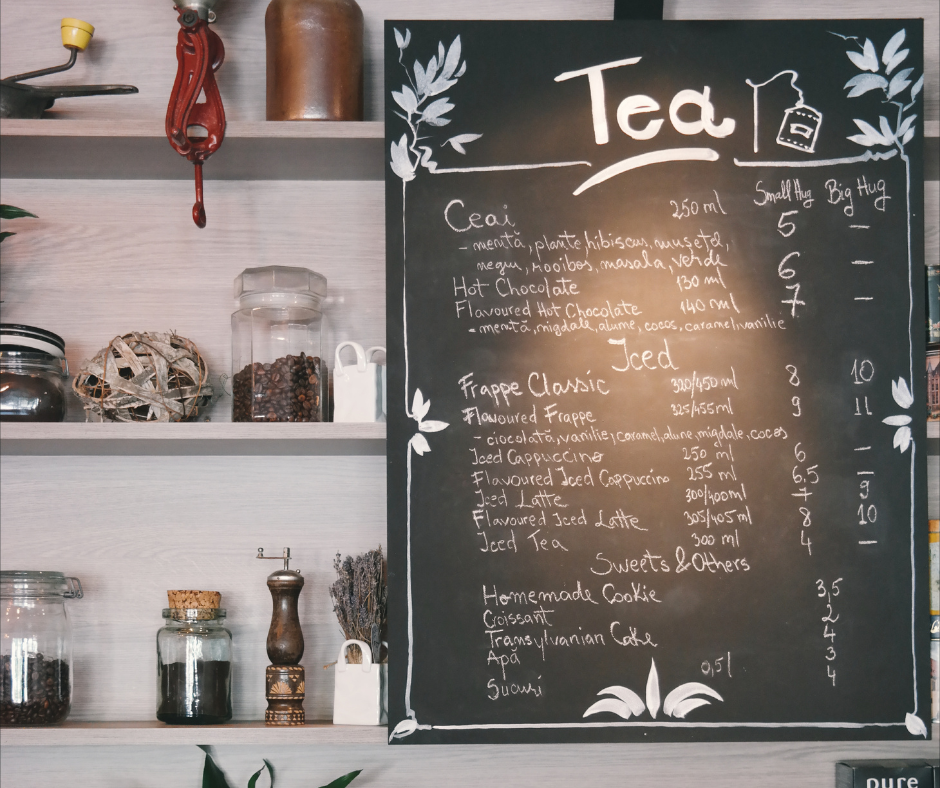 Tea
Small Hug Big Hug
Ceai 250 ml 5 –
- mentă, plante, hibiscus, mușețel,
negru, rooibos, masala, verde
Hot Chocolate 130 ml 6 –
Flavoured Hot Chocolate 140 ml 7 –
- mentă, migdale, alune, cocos, caramel, vanilie
Iced
Frappe Classic 320/450 ml 8 10
Flavoured Frappe 325/455 ml 9 11
- ciocolată, vanilie, caramel, alune, migdale, cocos
Iced Cappuccino 250 ml 6 –
Flavoured Iced Cappuccino 255 ml 6,5 –
Iced Latte 300/400 ml 7 9
Flavoured Iced Latte 305/405 ml 8 10
Iced Tea 300 ml 4 –
Sweets & Others
Homemade Cookie 3,5
Croissant 2
Transylvanian Cake 4
Apă 0,5 l 3
Sucuri 4
pure